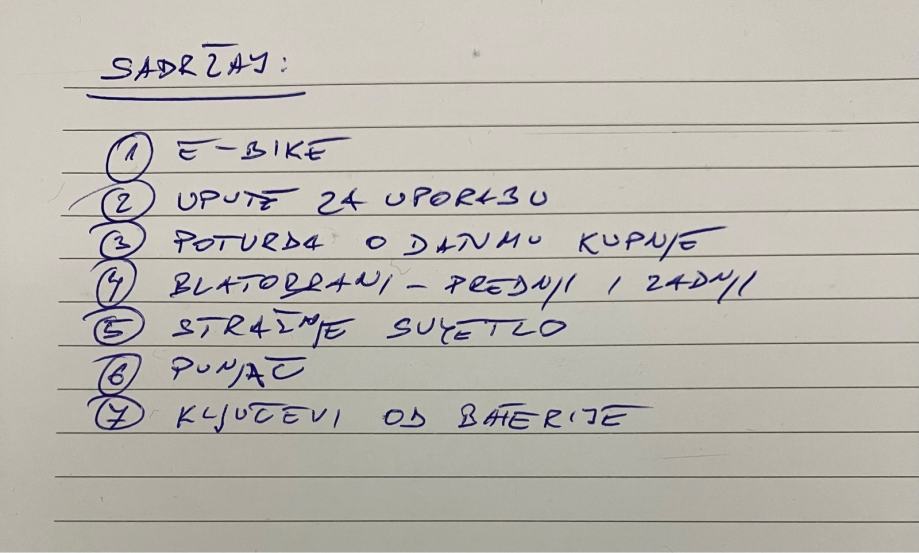 SADRŽAJ:
1 E-BIKE
2 UPUTE ZA UPORABU
3 POTVRDA O DATUMU KUPNJE
4 BLATOBRANI - PREDNJI I ZADNJI
5 STRAŽNJE SVJETLO
6 PUNJAČ
7 KLJUČEVI OD BATERIJE